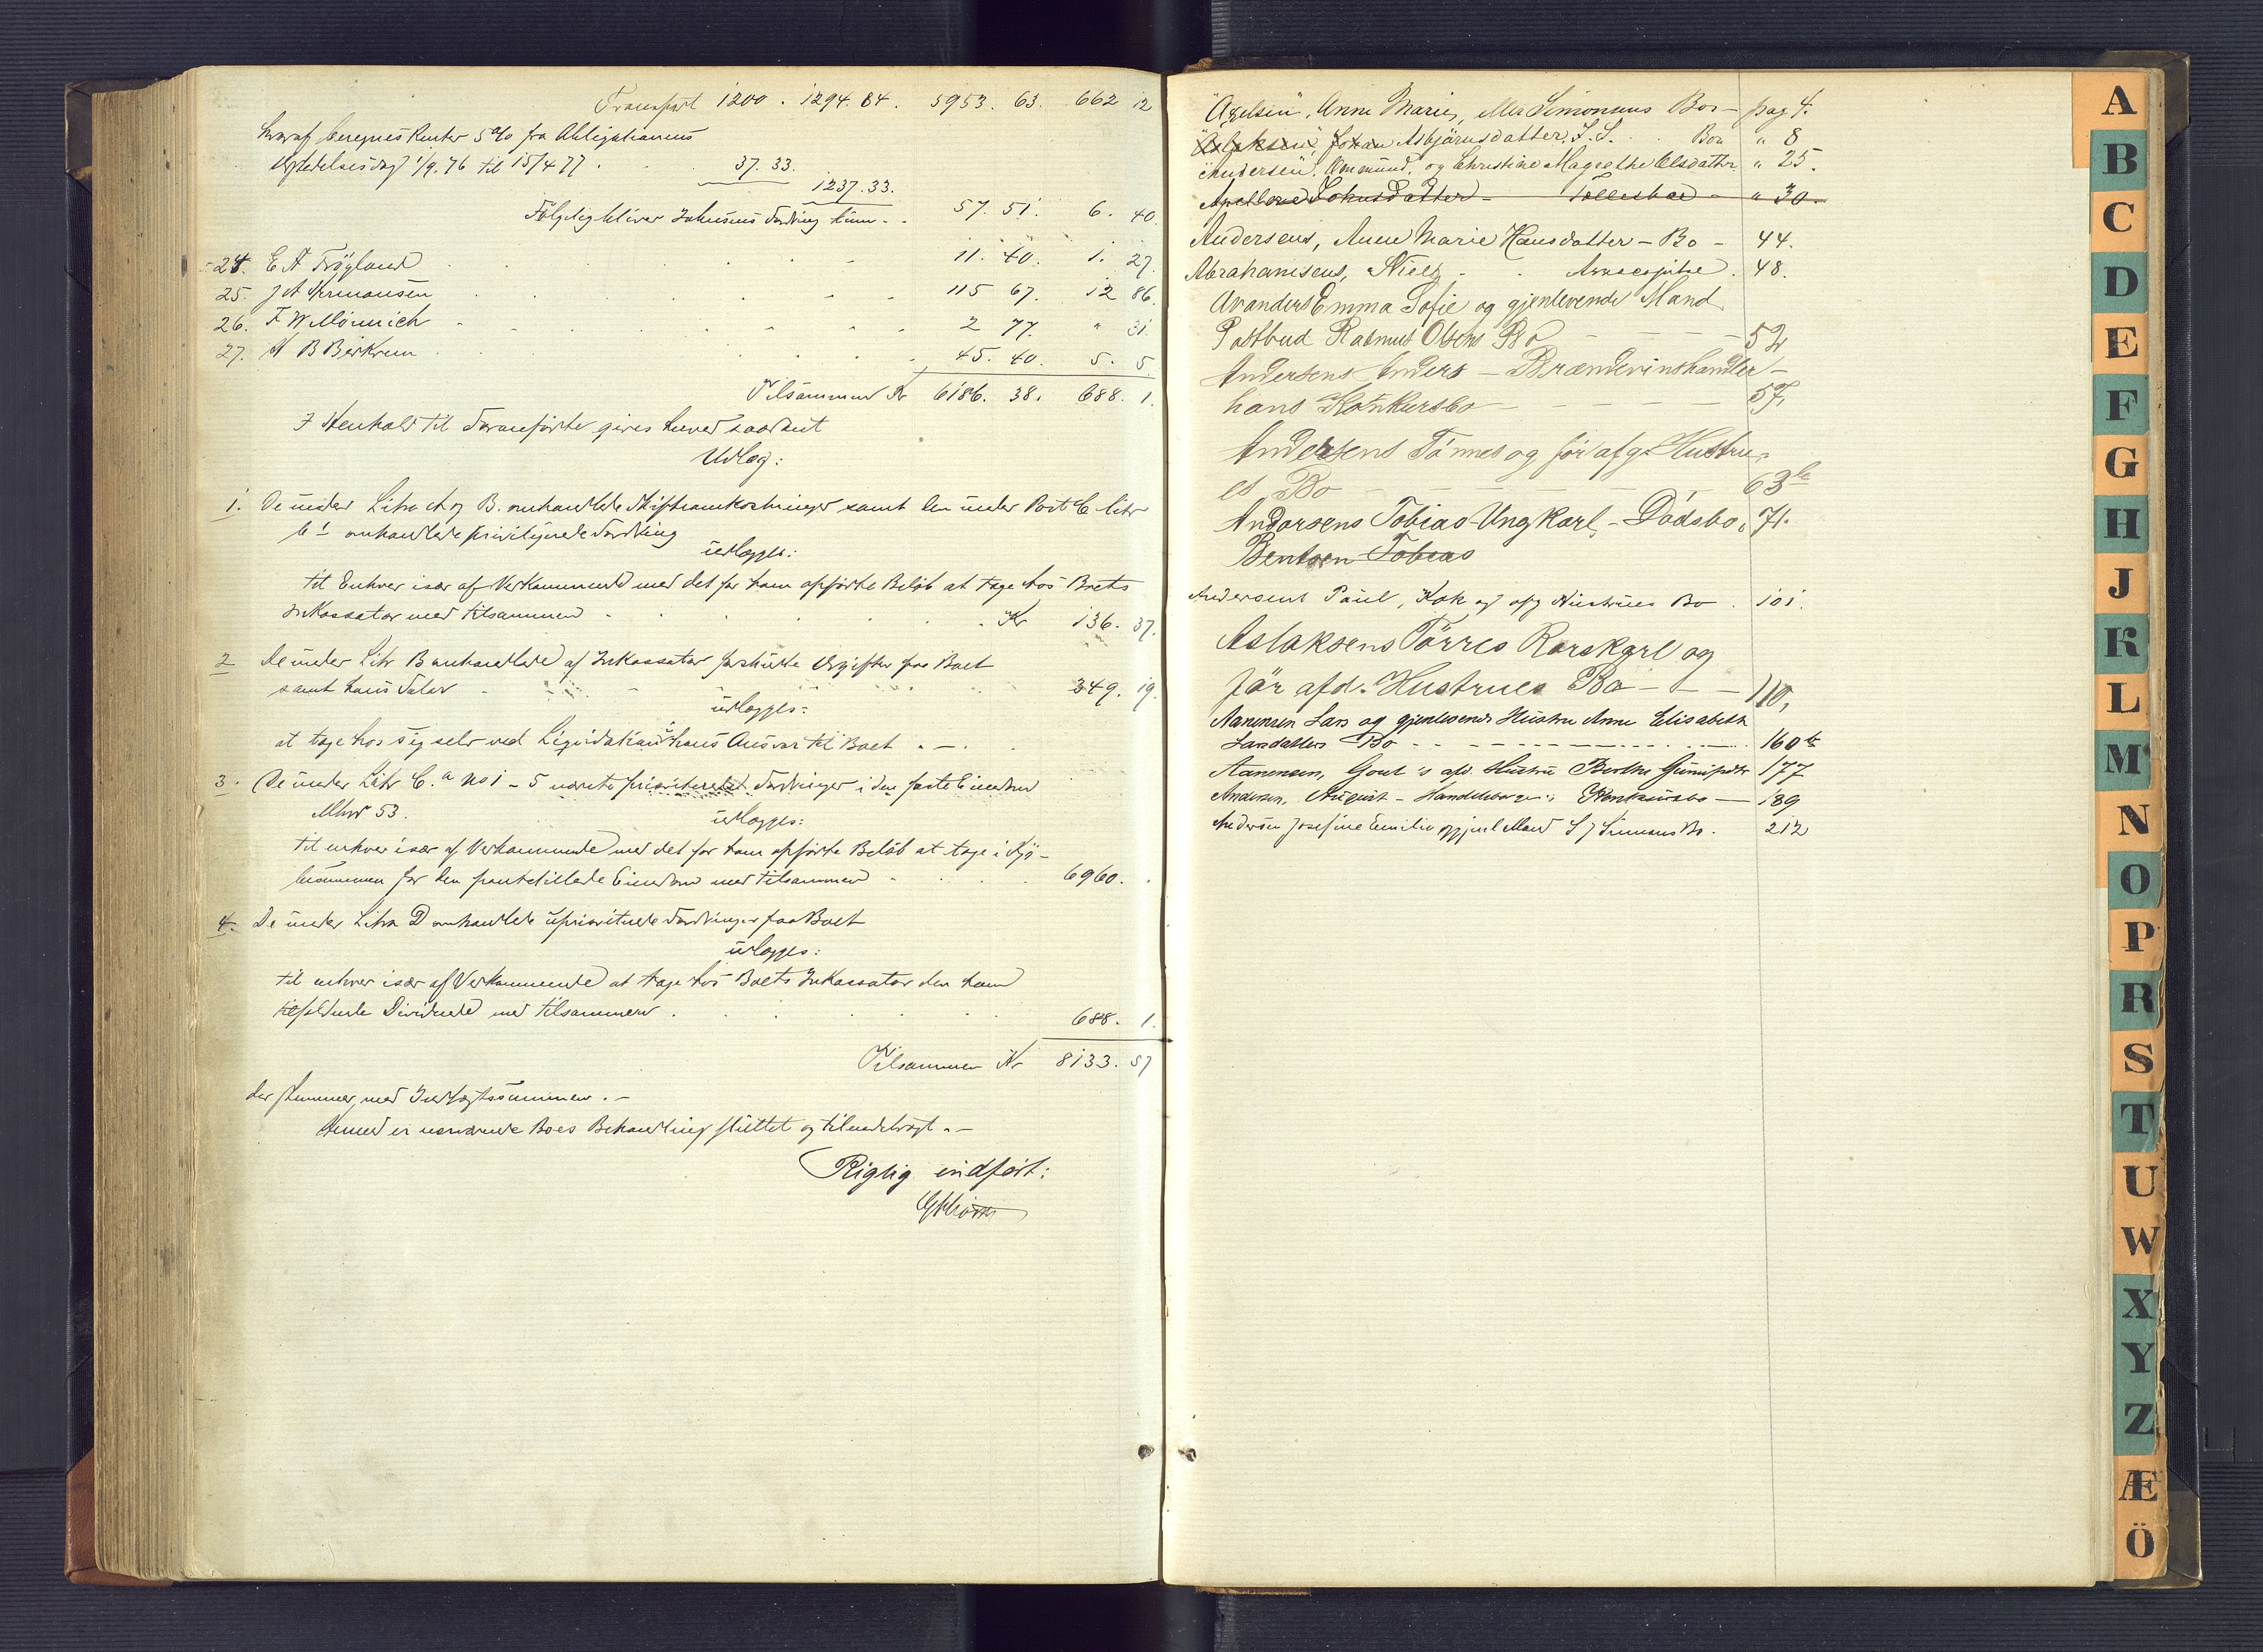 Transport 1200. 1294.84. 5953. 63. 662 12
hvoraf beregnes Renter 5 % fra Obligationens
Udstedelsesdag 1/9.76 til 15/4 77 . 37. 33.
1237.33.
Følgelig bliver Johnsens Fordring kun . . 57. 51. 6. 40
24. E A Tröyland . . . 11. 40. 1. 27.
25. J A Hermansen . . . 115 67. 12 86.
26. F W Mönnich . . . 2 77. " 31.
27. A B Birkrem . . . 45. 40. 5. 5.
Tilsammen Kr 6186. 38. 688. 1.
I Henhold til Foranførte gives herved saadant
Udlæg:
1. De under Litra A og B. omhandlede Skifteomkostninger samt den under Post C litr
b 1 omhandlede priviligerede Fordring
udlægges:
til Enhver især af Vedkommende med det for ham opførte Beløb at tage hos Boets
Inkassator med tilsammen . . . Kr 136. 37.
2 De under Litr B omhandlede af Inkassator forskudte Udgifter for Boet
samt hans Salær - . . . 349. 19.
udlægges:
at tage hos sig selv ved Liqvidation i hans Ansvar til Boet . - .
3. De under Litr C. a No 1 - 5 nævnte prioriterede Fordringer i den faste Eiendom
Mno 53. udlægges:
til enhver især af Vedkommende med det for ham opførte Beløb at tage i Kjö-
besummen for den pantstillede Eiendom med tilsammen . . . 6960. .
4. De under Litra D omhandlede uprioriterede Fordringer paa Boet
udlægges:
til enhver især af Vedkommende at tage hos Boets Inkassator den ham
tilfaldende Dividende med tilsammen . . . 688. 1.
Tilsammen Kr 8133. 57
der stemmer med Indtægtssummen. -
Hermed er nærværende Boes Behandling sluttet og tilendebragt . -
Rigtig indført:
"Axelsen", Anne Marie, Mr Simonsens Bo - pag 4.
"Aslaksen", Johan Asbjörnsdatter, I. S. . . Bo " 8
"Andersen", Ommund, og Christine Magrethe Olsdatter " 25.
Apellone Johnsdatter - Tollesboe - " 30.
Andersens, Anne Marie Hansdatter - Bo - 44.
Abrahamsens, Niels . . Arnespitse . 48.
Aranders Emma Sofie og gjenlevende Mand
Postbud Rasmus Olsens Bo - - - 52
Andersens Anders - Brændevinshandler -
hans Konkursbo - - - 57,
Andersens Tönnes og för afg. Hustru-
es Bo - - - 63 b
Andersens Tobias Ungkarl, - Dödsbo, 71.
Bentsen Tobias
Andersens Paul, Kok og afg Hustrues Bo . 101.
Aslaksens Törres Rorskarl og
för afd. Hustrues Bo - - - 110,
Aanensen Lars og gjenlevende Hustru Anne Elisabeth
Larsdatters Bo - - - 160 b
Aanensen, Gout 's afd. Hustru Berthe Gunifsdtr 177
Andersen, August - Handelsborger: Konkursbo - 189
Andersen Josefine Emilie og gjenl Mand S J Simons Bo. 212
A
B
C
D
E
F
G
H
J
K
L
M
N
O
P
R
S
T
U
W
X
Y
Z
Æ
Ö